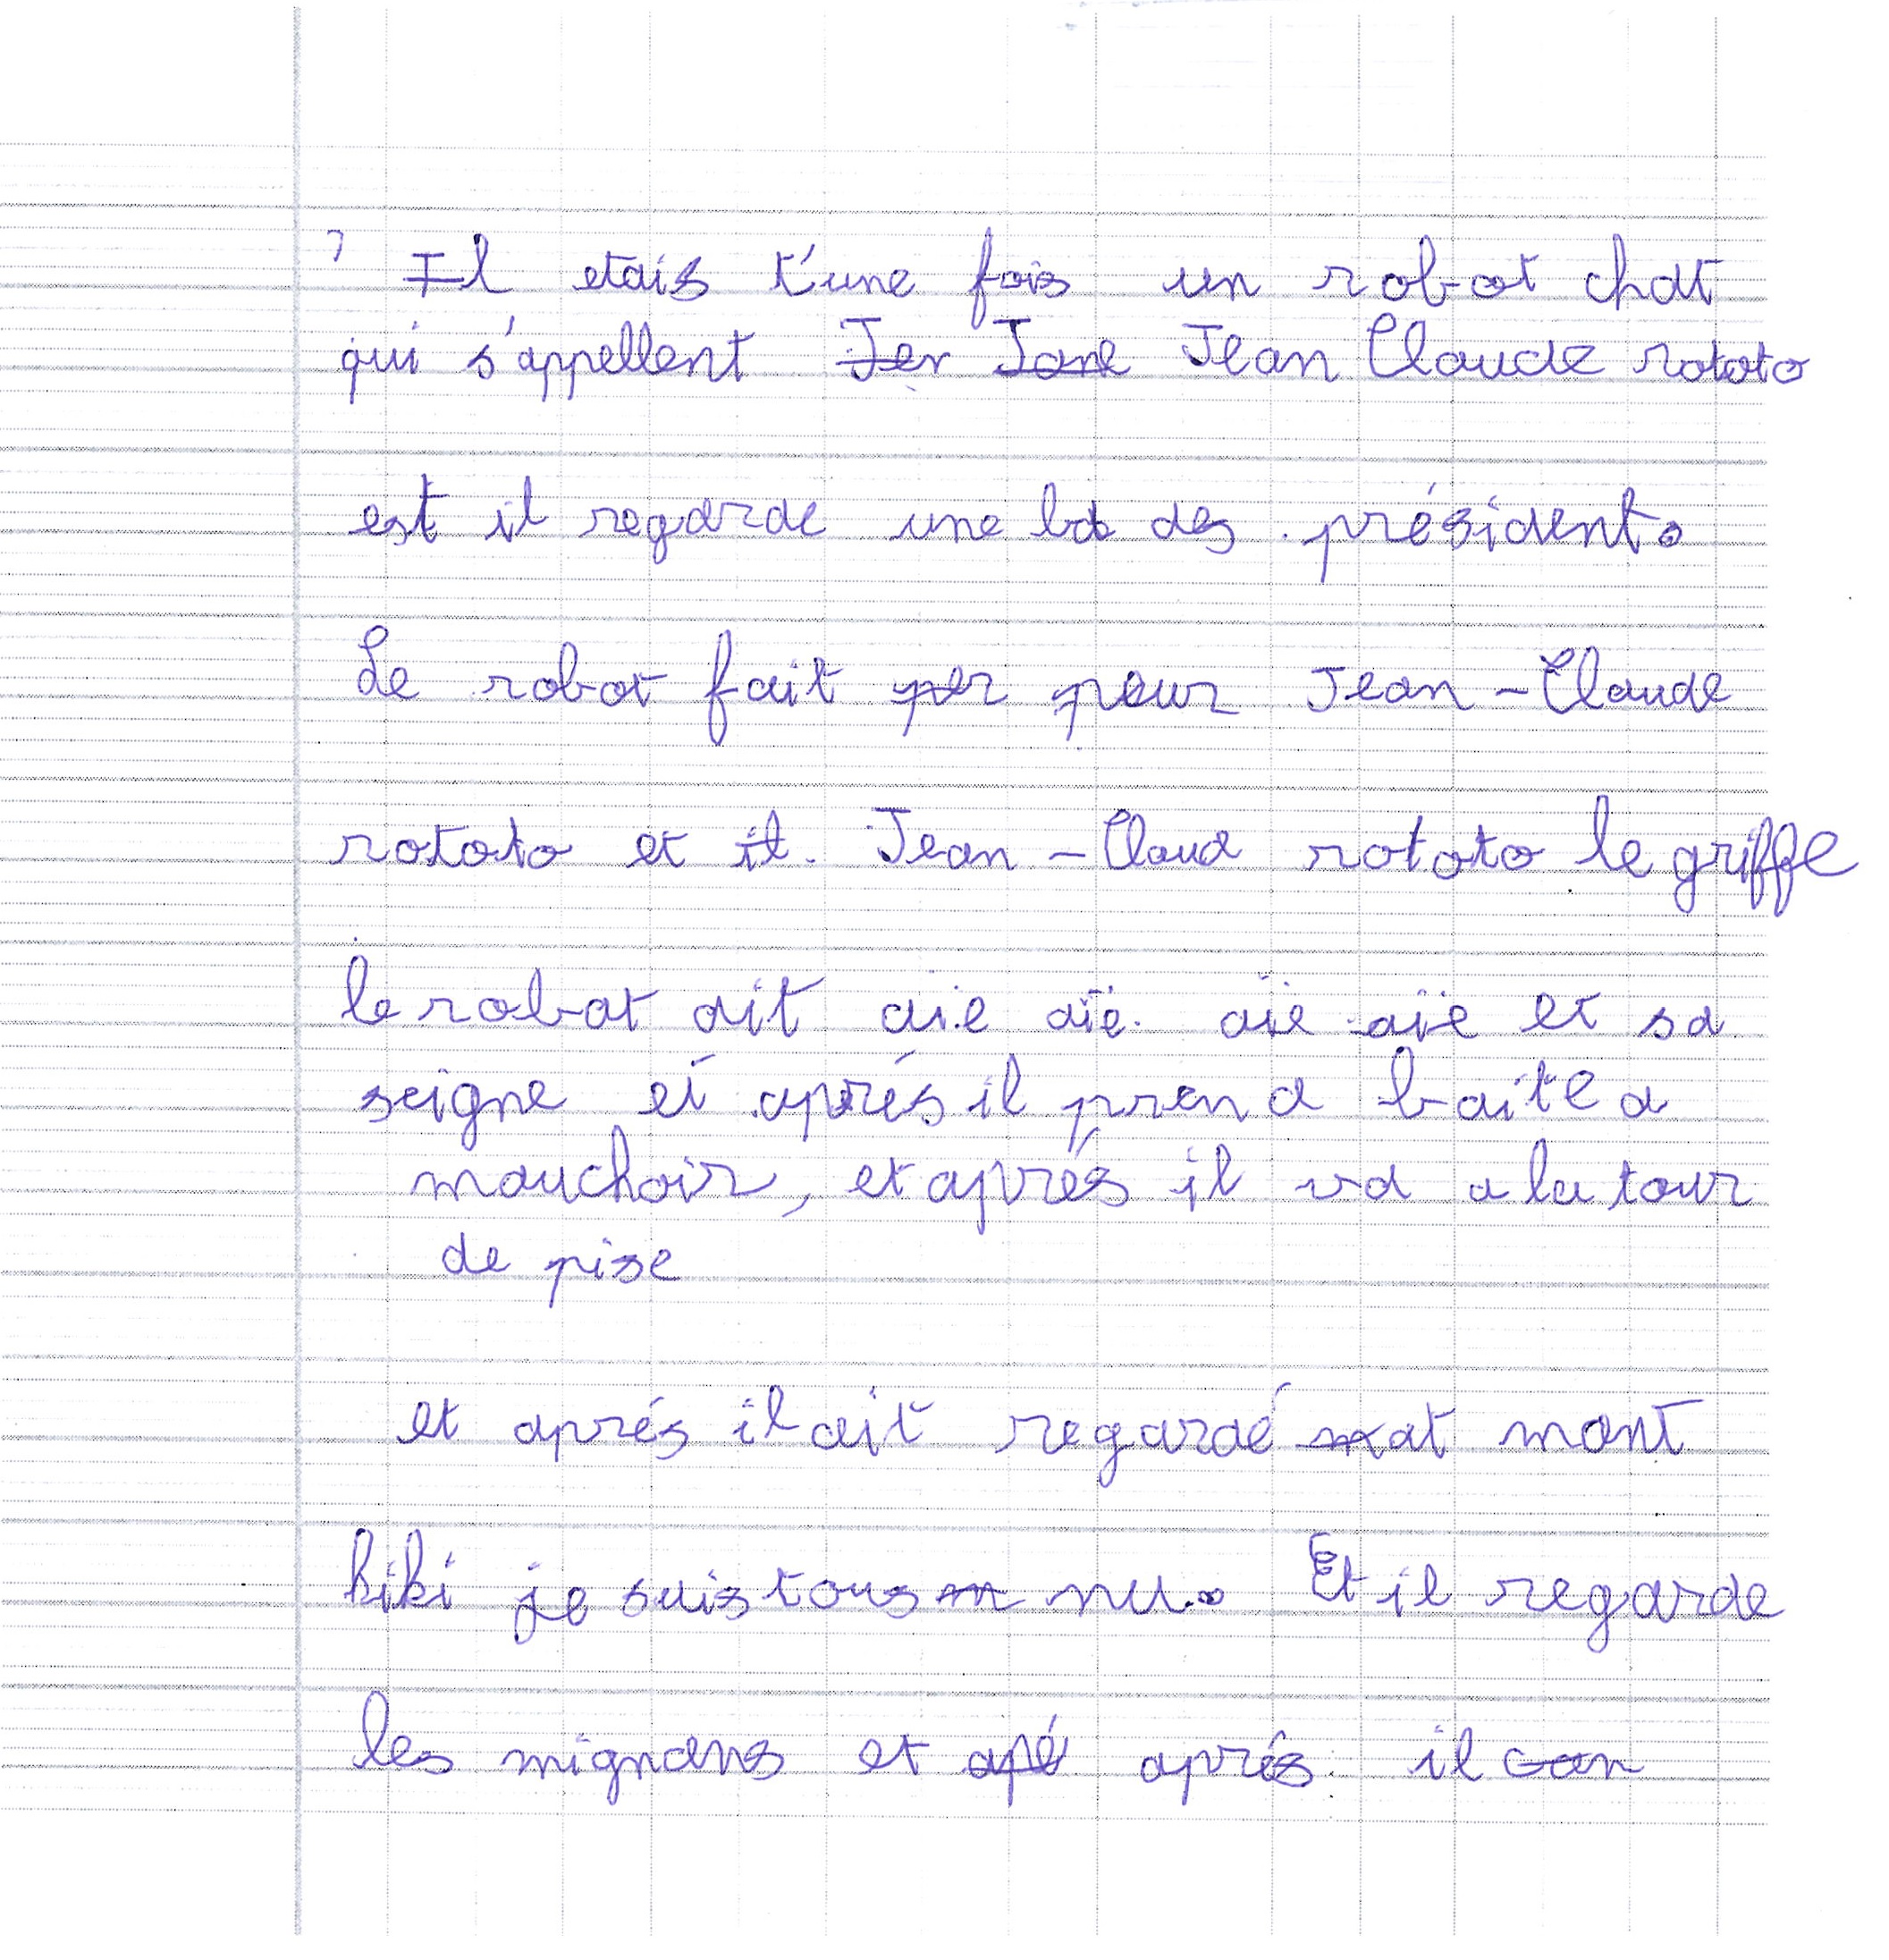 Il etais t'une fois un robot chat
qui s'appellent Jer Jane Jean Claude rototo
est il regarde une bd des présidents
Le robot fait per peur Jean-Claude
rototo et il. Jean-Claud rototo le griffe
le robot dit aie aïe aïe aïe et sa
seigne et aprés il prend boite a
mouchoir, et aprés il va a la tour
de pise
et aprés il ait regardé mat mont
kiki je suis tous m nu. Et il regarde
les mignons et apé aprés il con